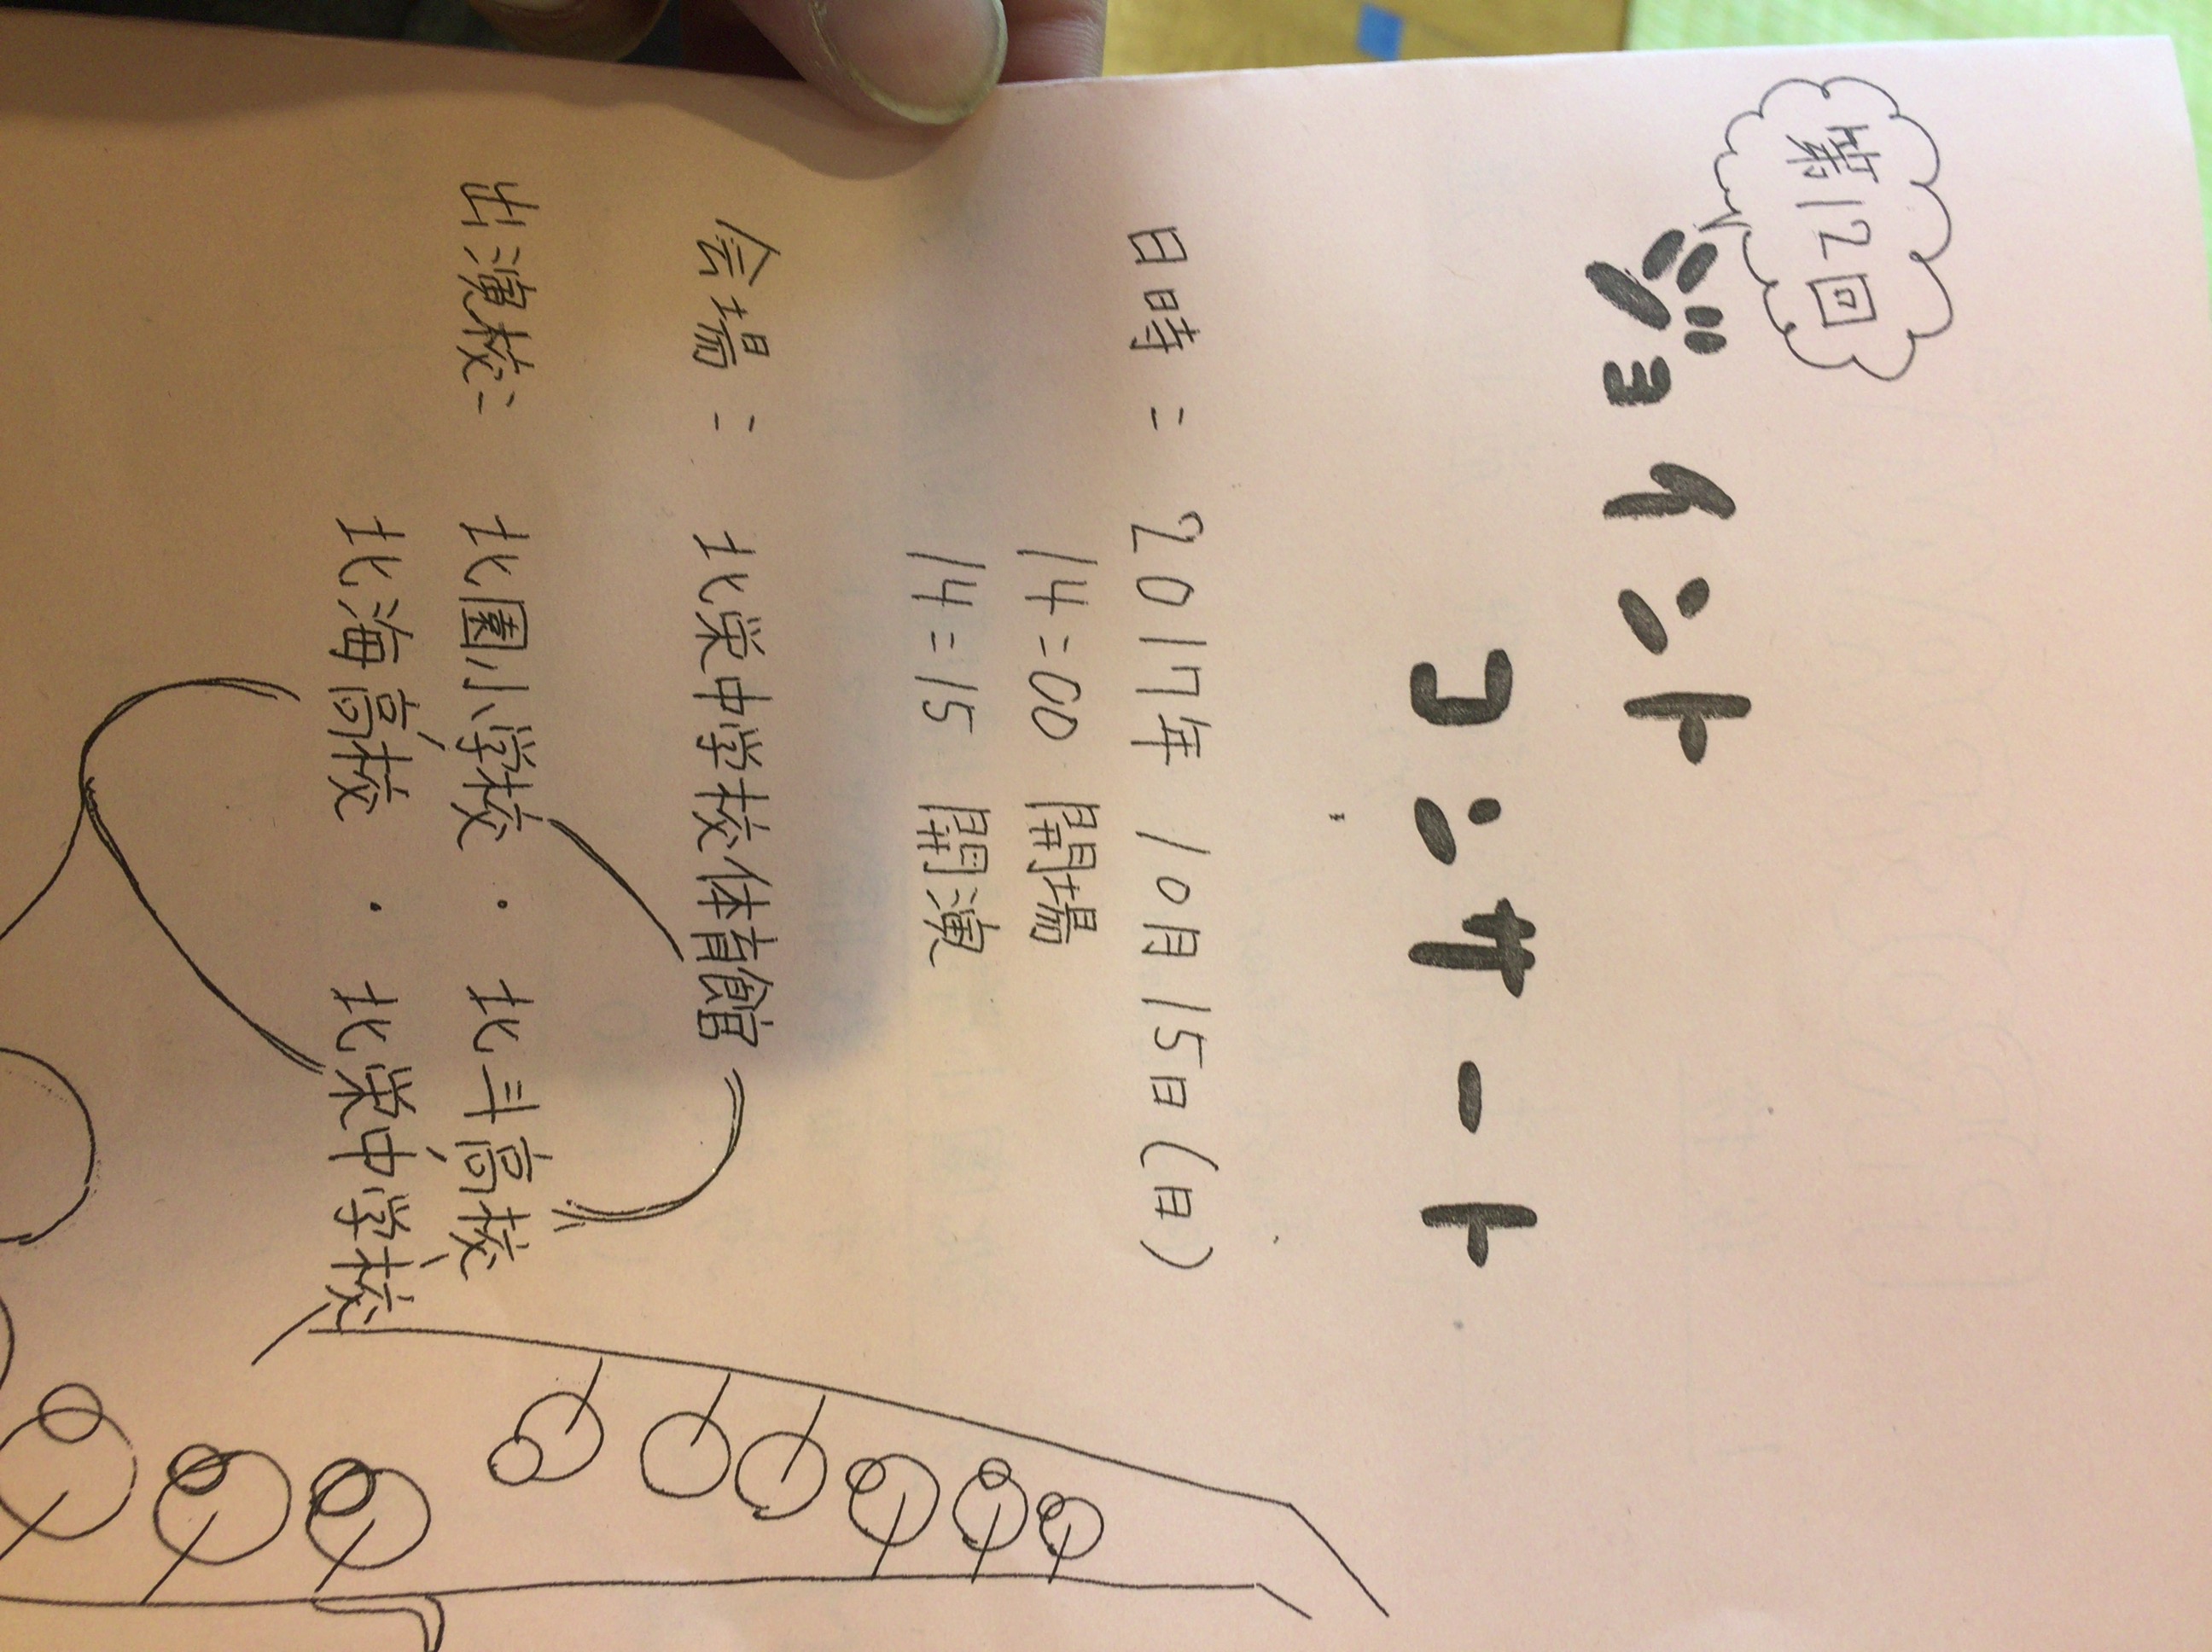 第12回
ジョイント
コンサート
日時：2017年 10月15日(日)
14：00 開場
14：15 開演
会場： 北栄中学校体育館
出演校： 北園小学校・北斗高校
北海高校・北栄中学校